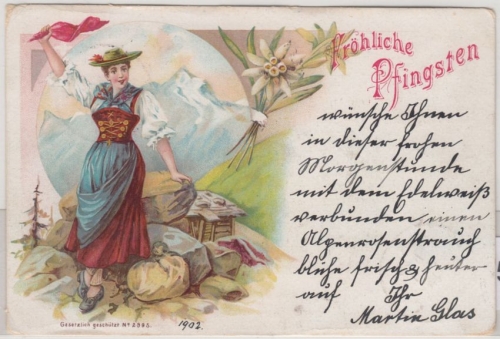 Fröhliche
Pfingsten
wünsche Ihnen
in dieser frohen
Morgenstunde
mit dem Edelweiß
verbunden einen
Alpenrosenstrauch
blühe frisch & heuter
auf Ihr
Martin Glas
Generation geschützt No 2995.
1902